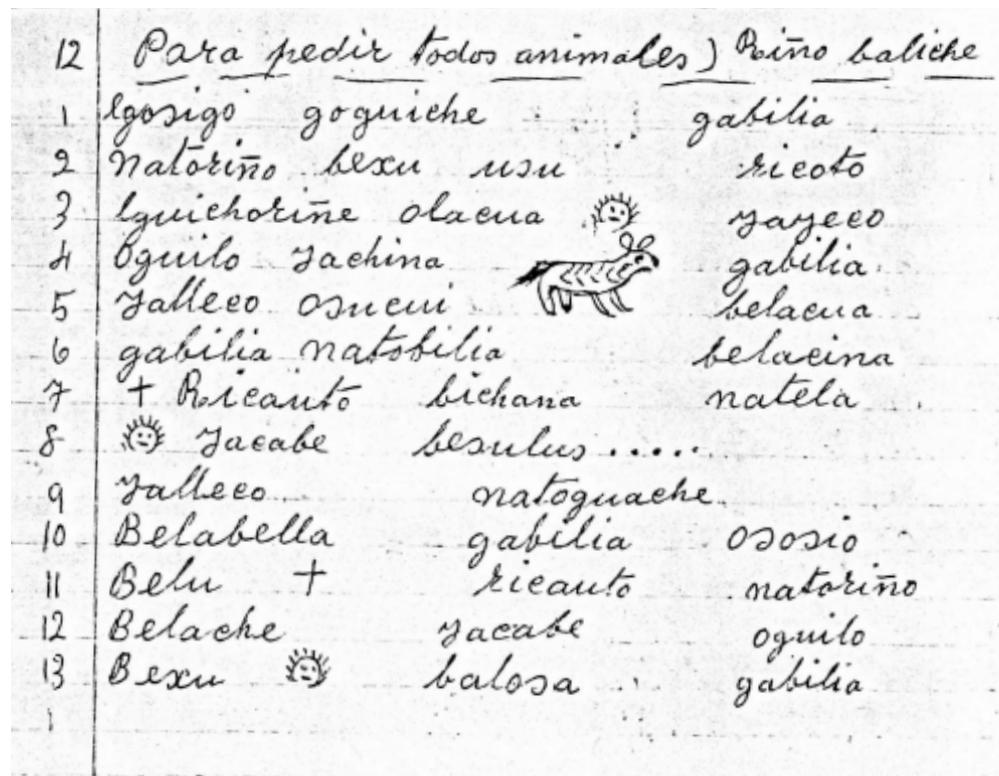 12 Para pedir todos animales) Riño baliche
1 Igosigo goguiche gabilia
2 Natoriño bexu usu ricoto
3 Iguichoriñe olacua yayeco
4 Oguilo yachina gabilia.
5 Yalleco osucui belacua
6 gabilia natobilia belacina
7 + Ricauto bichana natela
8 Yacabe besulus .....
9 Yalleco natoguache
10 Belabella gabilia ososio
11 Belu + ricauto natoriño
12 Belache yacabe oguilo
13 Bexu balosa gabilia